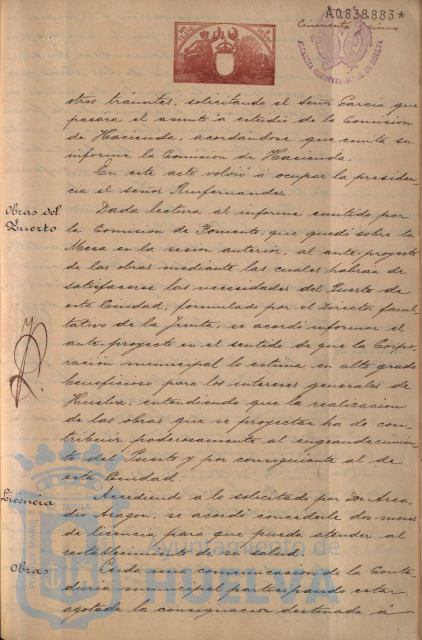 A0.838.883*
Cincuenta
ALCALDIA CONSTITUCIONAL DE HUELVA
otros trámites, solicitando el señor García que
pasara el asunto á estudio de la Comision
de Hacienda, acordándose que emita su
informe la Comision de Hacienda.
En este acto volvió á ocupar la presiden-
cia el señor
Obras del
Puerto
Dada lectura al informe emitido por
la Comision de Fomento, que quedó sobre la
Mesa en la sesion anterior, al ante-proyecto
de las obras mediante las cuales habran de
satisfacerse las necesidades del Puerto de
esta Ciudad, formulado por el Director facul-
tativo de la Junta, se acordó informar el
ante-proyecto en el sentido de que la Corpo-
racion municipal lo estima en alto grado
beneficioso para los intereses generales de
Huelva, entendiendo que la realizacion
de las obras que se proyectan ha de con-
tribuir poderosamente al engrandecimien-
to del Puerto y por consiguiente al de
esta Ciudad.
Licencia
Accediendo á lo solicitado por Don Arca-
dio Aragon, se acordó concederle dos meses
de licencia para que pueda atender al
restablecimiento de su salud.
Obras
Leida una comunicacion de la Conta-
duria municipal participando estar
agotada la consignacion destinada á
Ayuntamiento de
HUELVA